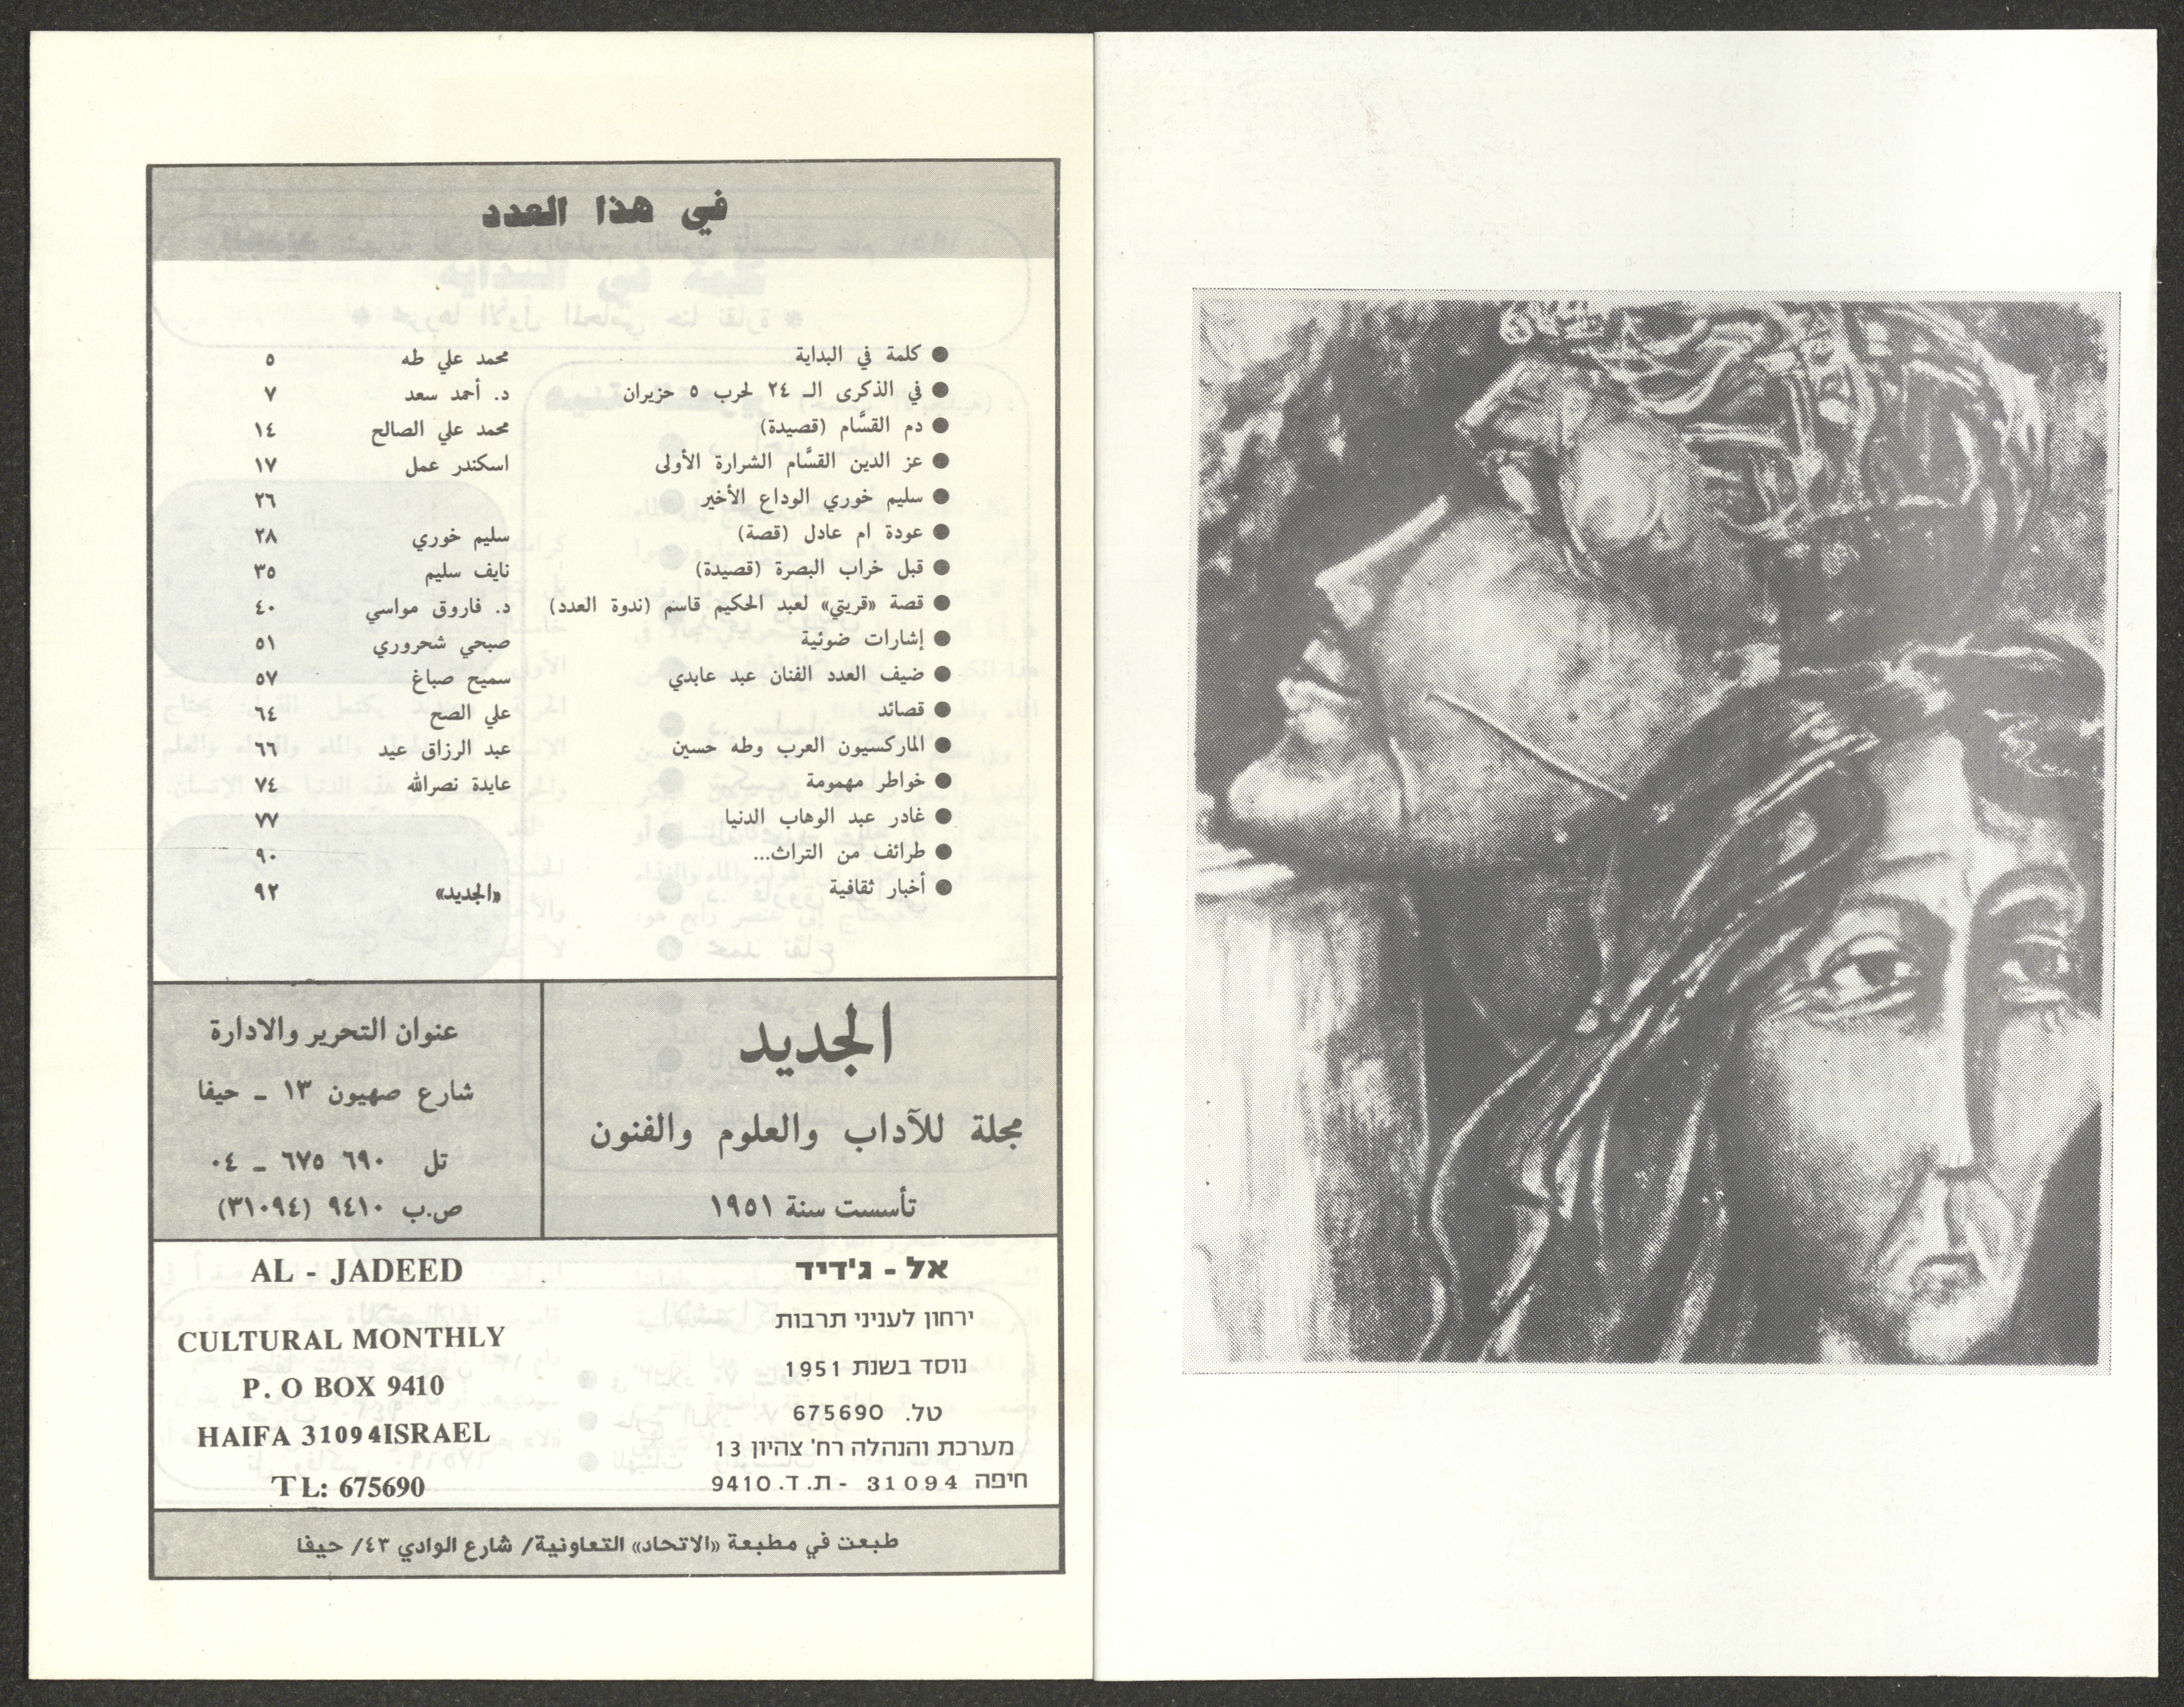 في هذا العدد
● كلمة في البداية محمد علي طه ٥
● في الذكرى الـ ٢٤ لحرب ٥ حزيران د. أحمد سعد ٧
● دم القسَّام (قصيدة) محمد علي الصالح ١٤
● عز الدين القسَّام الشرارة الأولى اسكندر عمل ١٧
● سليم خوري الوداع الأخير ٢٦
● عودة ام عادل (قصة) سليم خوري ٢٨
● قبل خراب البصرة (قصيدة) نايف سليم ٣٥
● قصة «قريتي» لعبد الحكيم قاسم (ندوة العدد) د. فاروق مواسي ٤٠
● إشارات ضوئية صبحي شحروري ٥١
● ضيف العدد الفنان عبد عابدي سميح صباغ ٥٧
● قصائد علي الصح ٦٤
● الماركسيون العرب وطه حسين عبد الرزاق عيد ٦٦
● خواطر مهمومة عايدة نصرالله ٧٤
● غادر عبد الوهاب الدنيا ٧٧
● طرائف من التراث... ٩٠
● أخبار ثقافية «الجديد» ٩٢
الجديد
مجلة للآداب والعلوم والفنون
تأسست سنة ١٩٥١
عنوان التحرير والادارة
شارع صهيون ١٣ ــ حيفا
تل ٦٩٠ ٦٧٥ ــ ٠٤
ص.ب ٩٤١٠ (٣١٠٩٤)
אל - ג'דיד
ירחון לעניני תרבות
נוסד בשנת 1951
טל. 675690
מערכת והנהלה רח' צהיון 13
חיפה 31094 -ת.ד.9410
AL - JADEED
CULTURAL MONTHLY
P. O BOX 9410
HAIFA 31094ISRAEL
TL: 675690
طبعت في مطبعة «الاتحاد» التعاونية/ شارع الوادي ٤٣/ حيفا